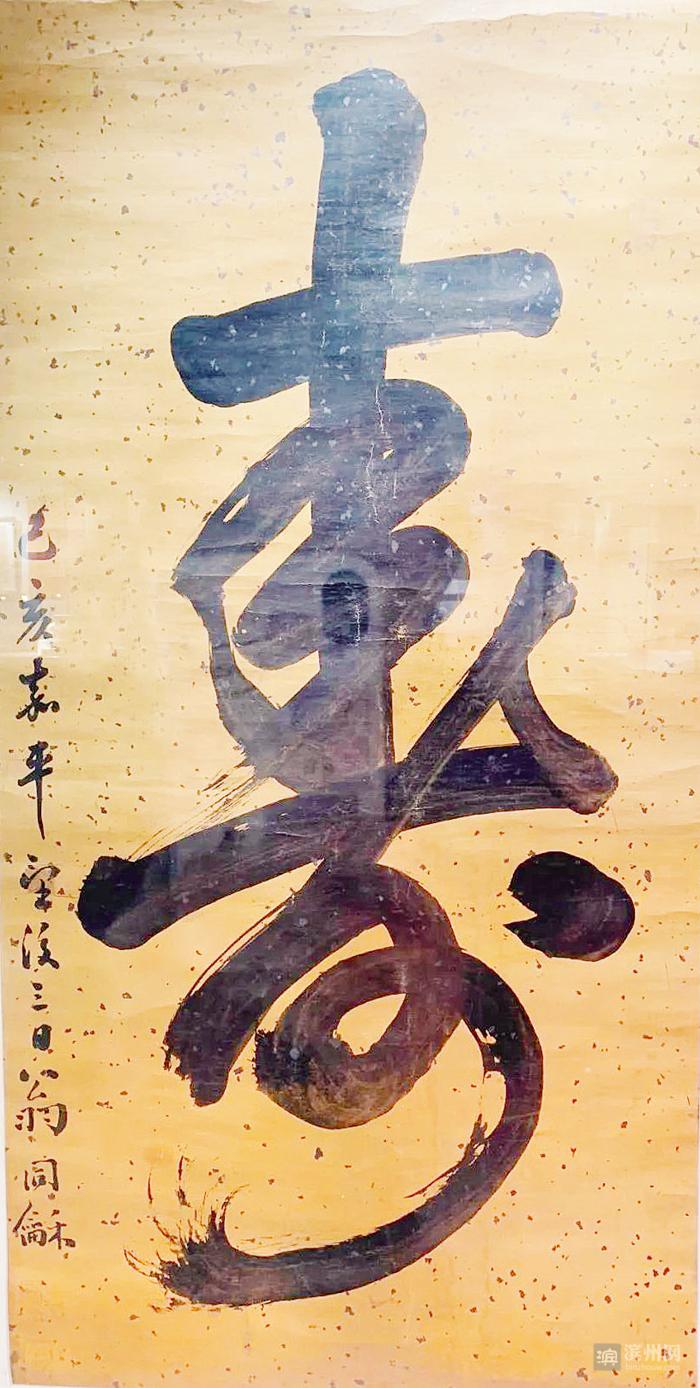 壽
己亥嘉平望後三日翁同龢
滨 滨州网
binzhouw.com